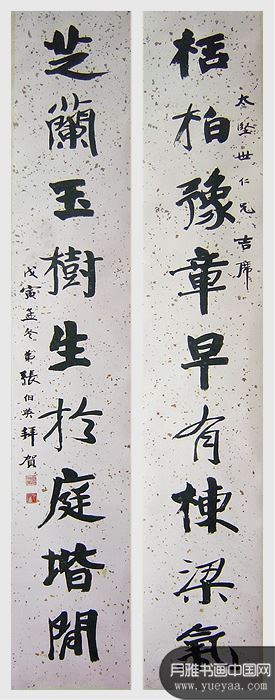 太世仁兄吉席
栝柏豫章早有棟梁氣
芝蘭玉樹生於庭堦間
戊寅孟冬弟張伯英拜賀
月雅书画中国网
www.yueyaa.com